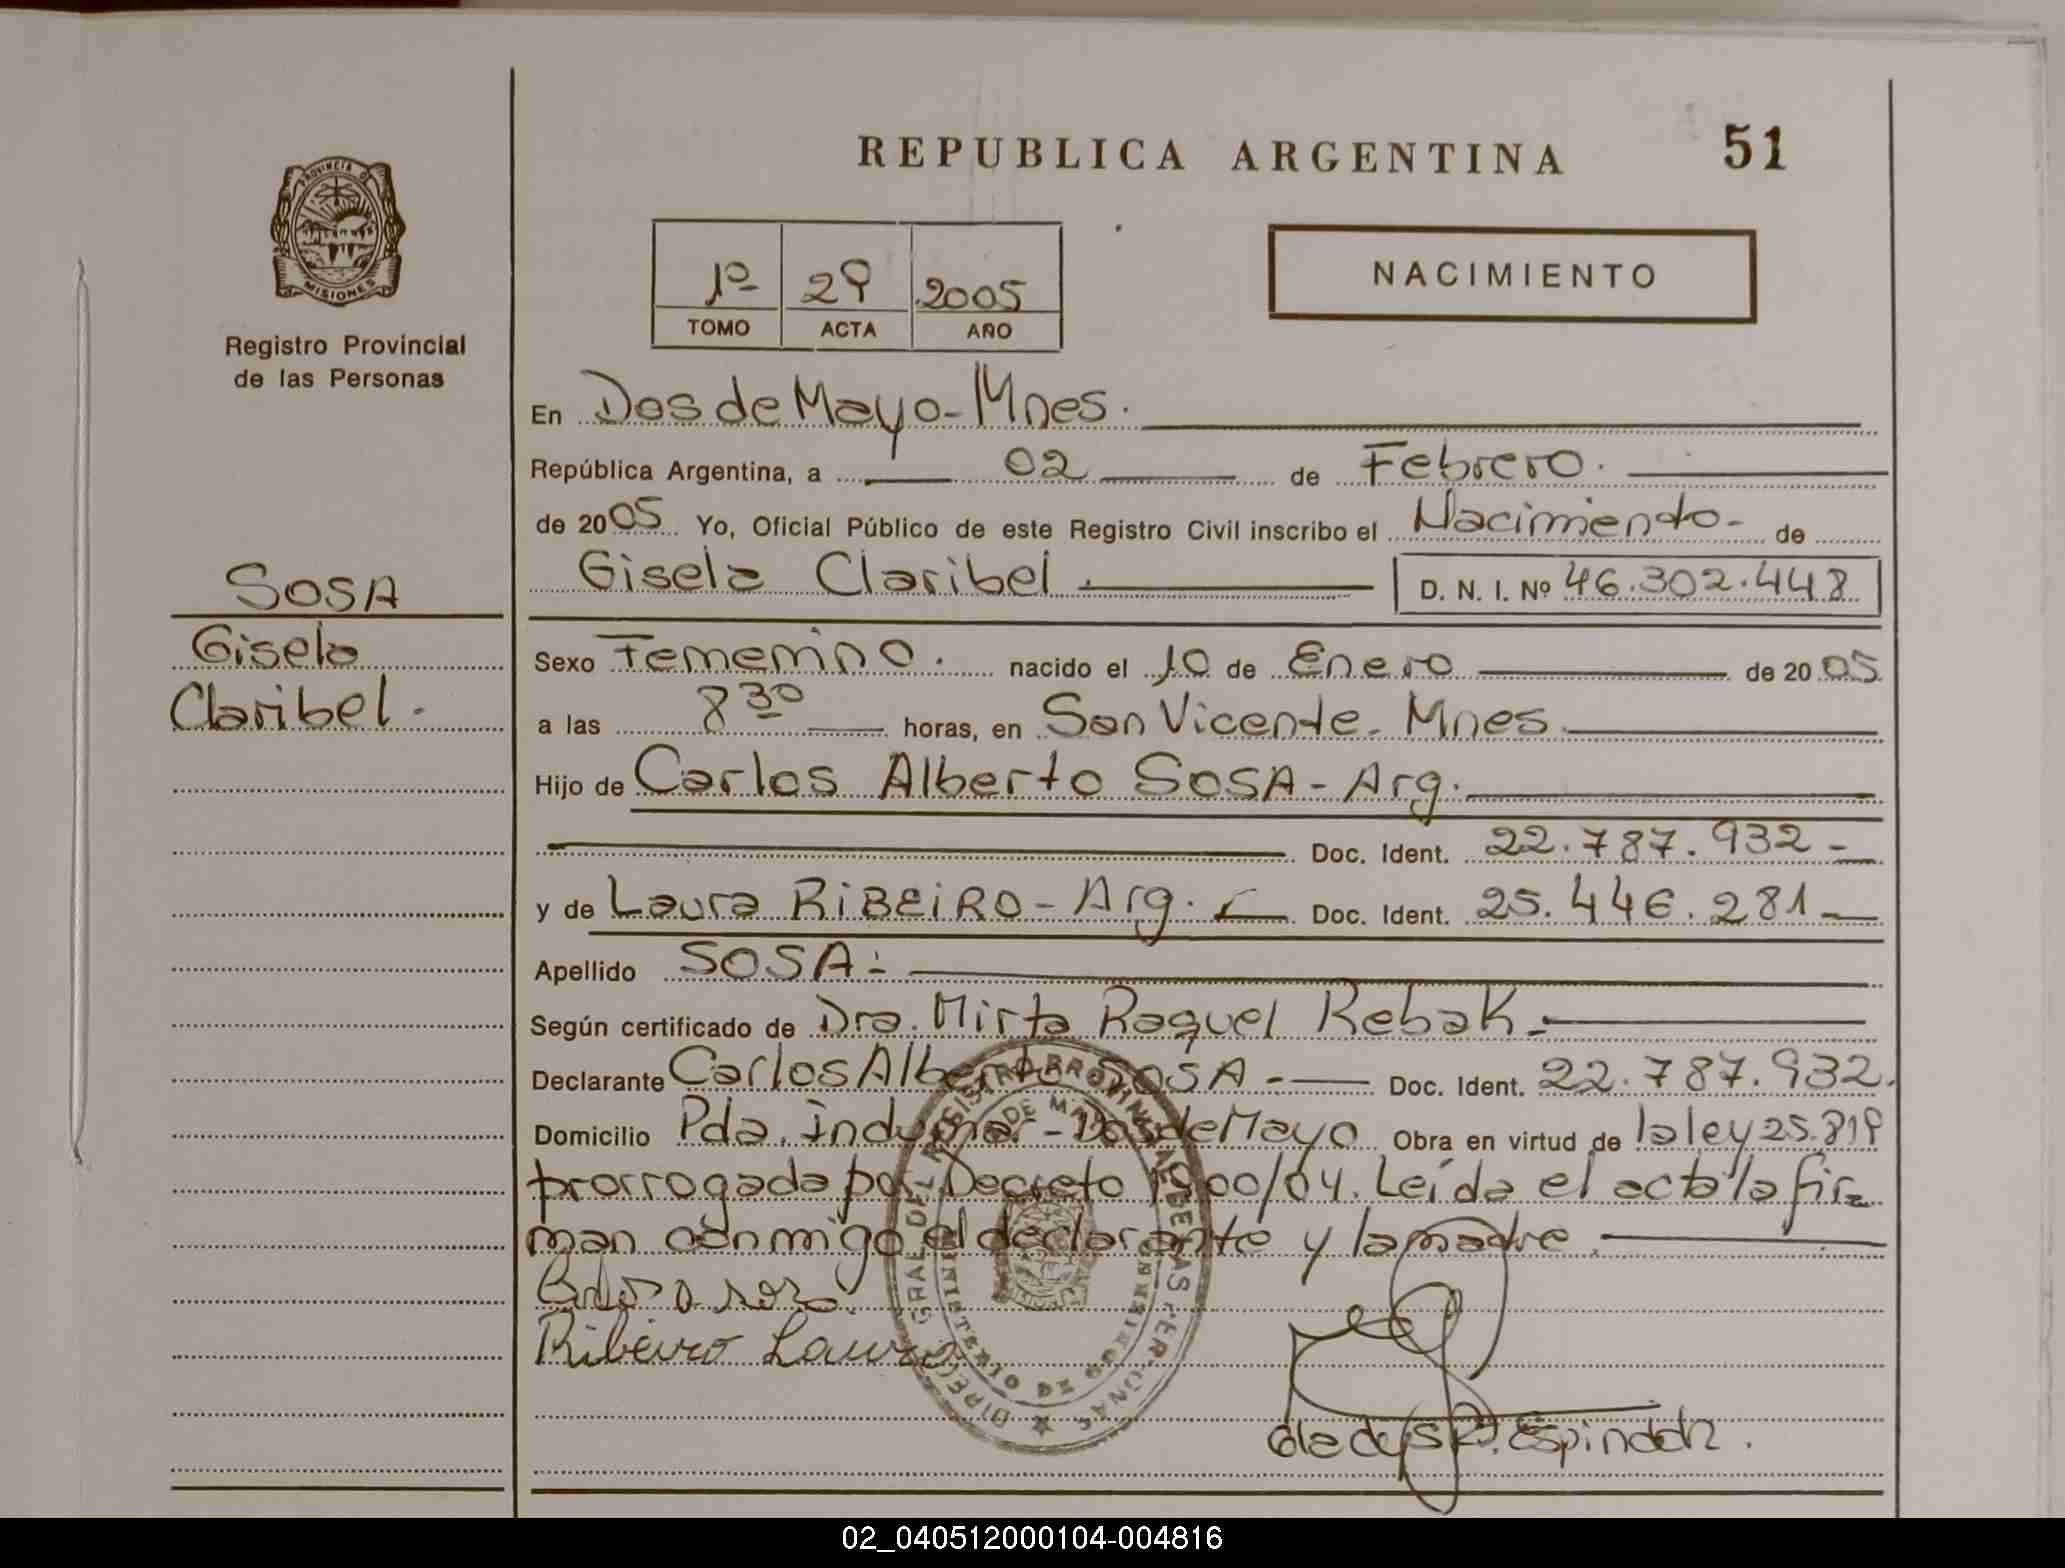 REPUBLICA ARGENTINA 51
PROVINCIA DE
MISIONES
Registro Provincial
de las Personas
1º 29 2005
TOMO ACTA AÑO
NACIMIENTO
SOSA
Gisela
Claribel.-
En Dos de Mayo-Mnes.
República Argentina, a 02 de Febrero.
de 2005 Yo, Oficial Público de este Registro Civil inscribo el Nacimiento- de
Gisela Claribel. D. N. I. Nº 46.302.448
Sexo Femenino. nacido el 10 de Enero de 2005
a las 8 30 horas, en San Vicente- Mnes
Hijo de Carlos Alberto SOSA-Arg.
Doc. Ident. 22.787.932-
y de Laura RIBEIRO-Arg. Doc. Ident. 25.446.281-
Apellido SOSA.-
Según certificado de Dra. Mirta Raquel Rebak.-
Declarante Carlos Alberto SOSA- Doc. Ident. 22.787.932.
Domicilio Pda. Indumar-Dos de Mayo Obra en virtud de la ley 25.819
prorrogada por Decreto 1900/04. Leída el acta la fir=
man conmigo el declarante y la madre.
Ribeiro Laura
Gladys R. Espindola.
02_040512000104-004816